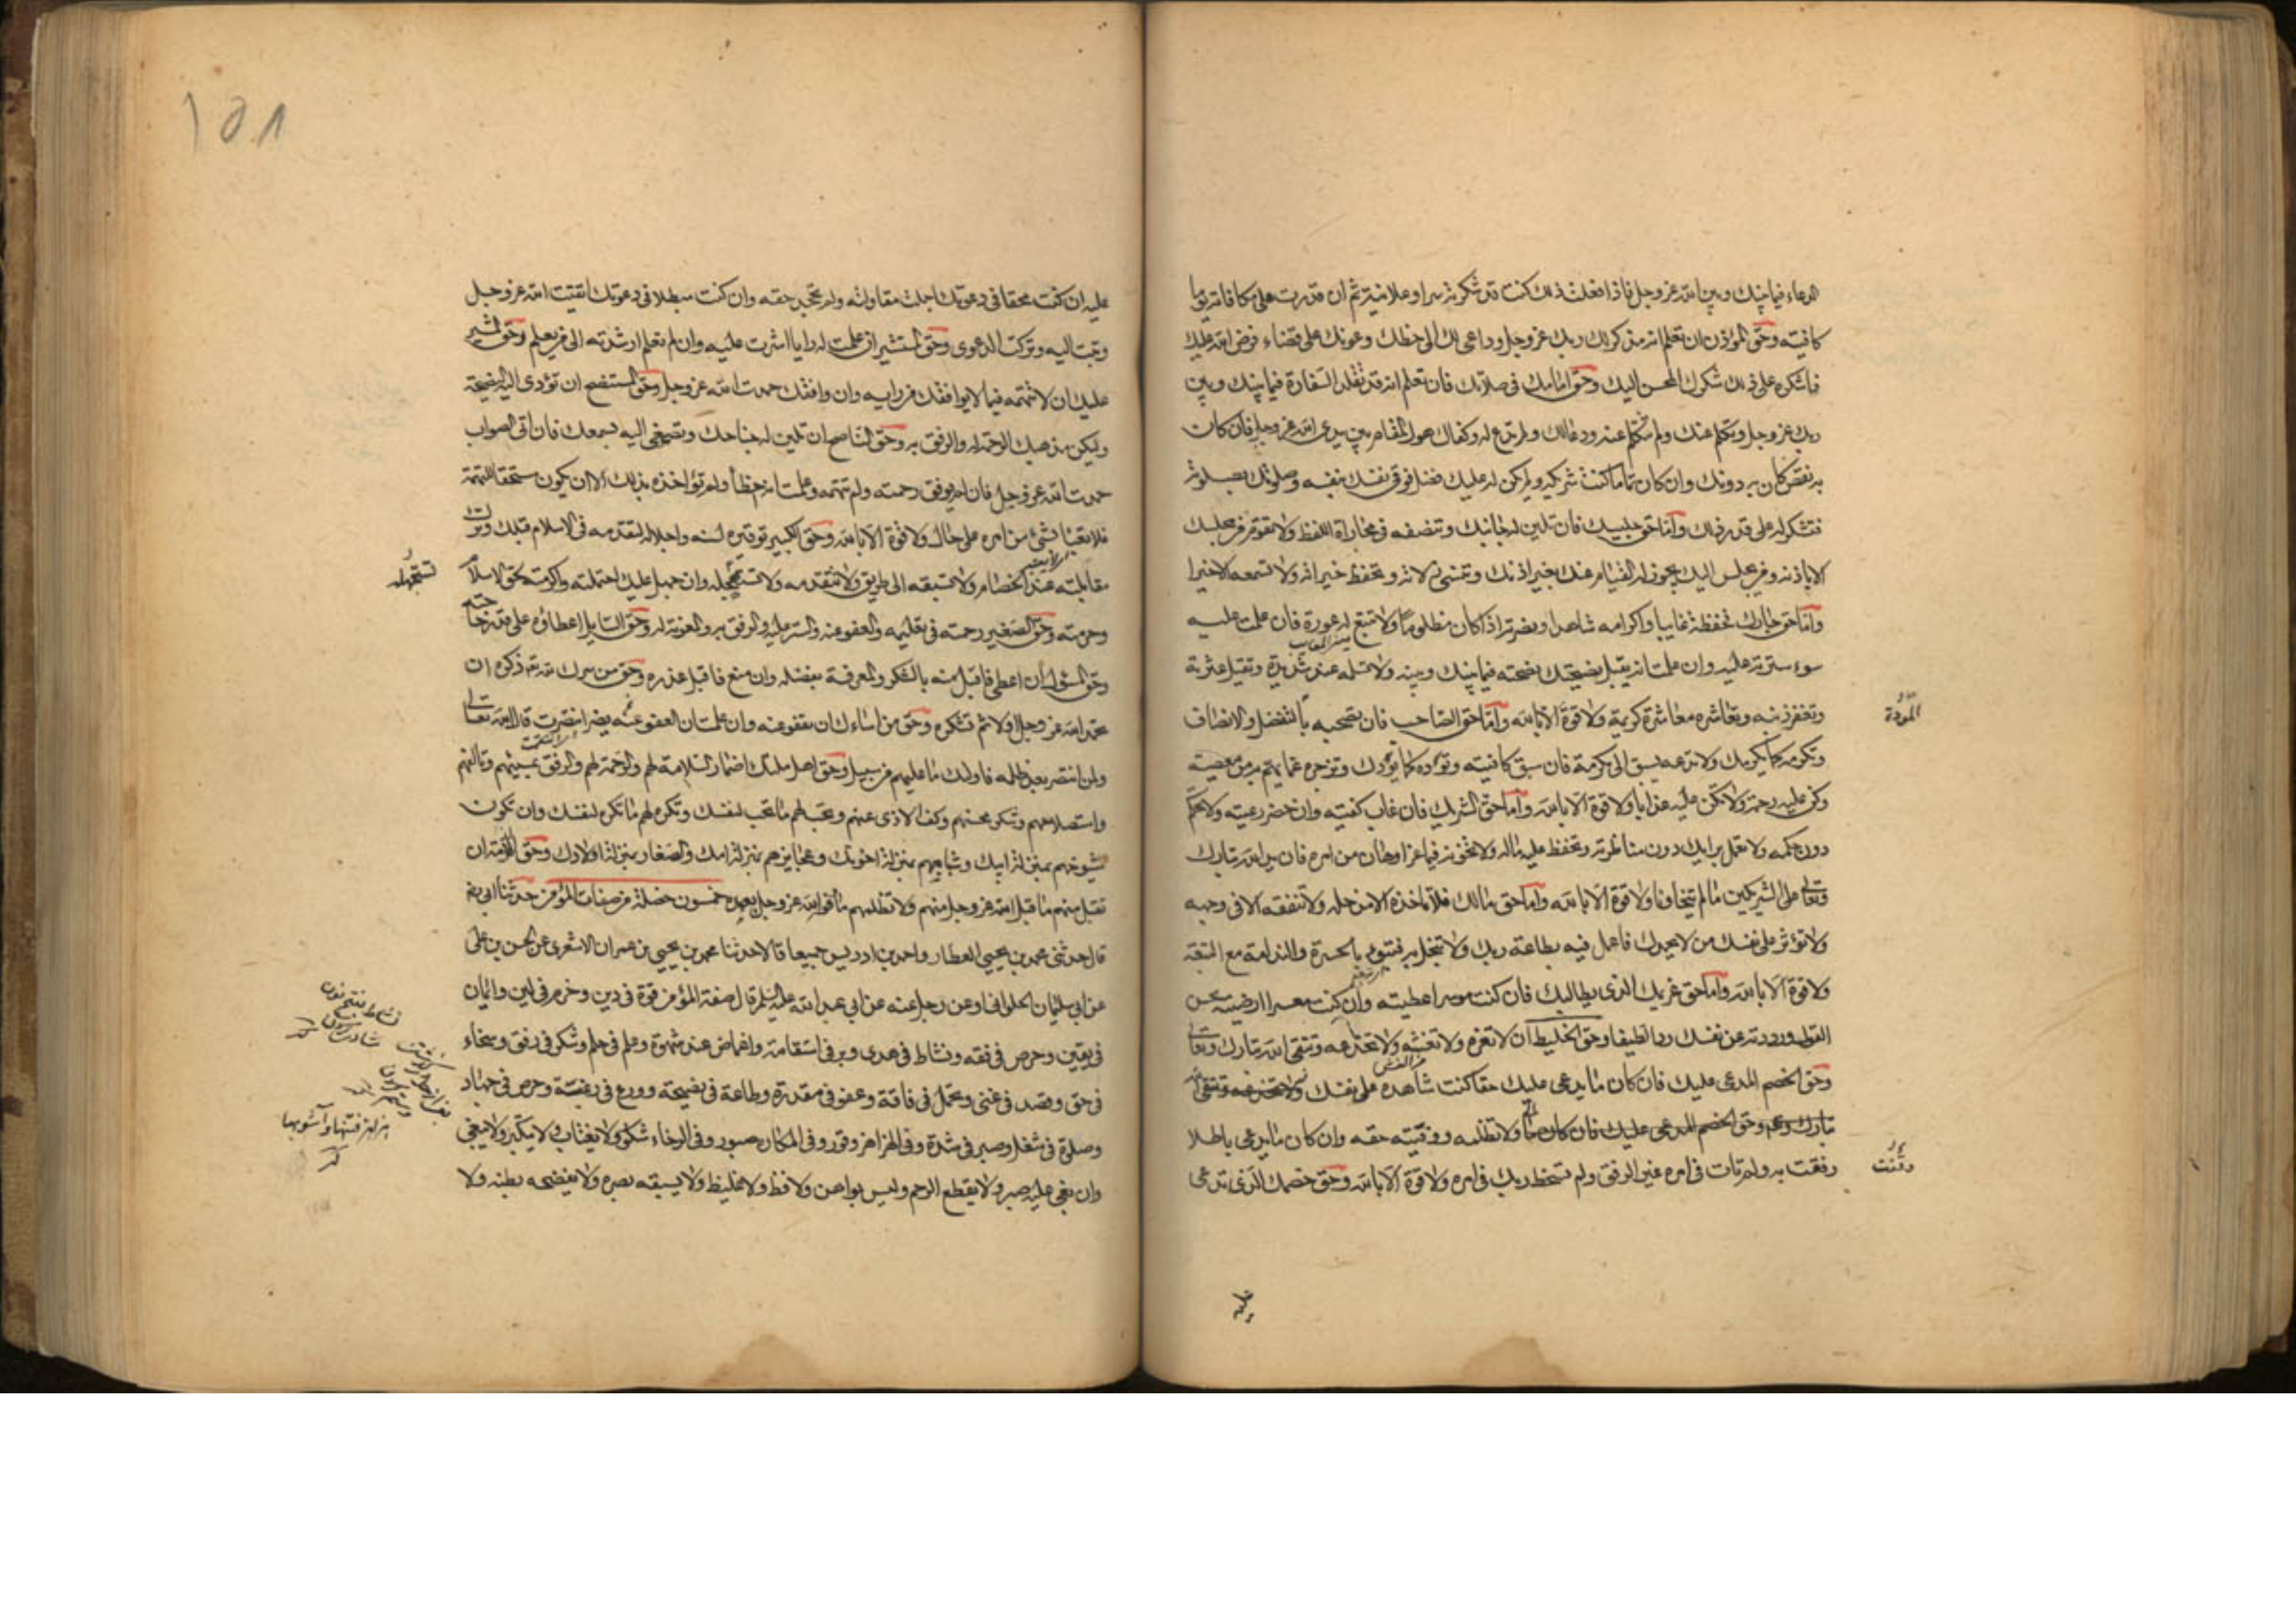 الدعاء فيما بينك وبين الله عز وجل فاذا فعلت ذلك كنت قد شكرته سرا وعلانية ثم ان قدرت على مكافاته يوما
كافيته وحق المؤذن ان تعلم انه مذكر لك ربك عز وجل وداعى لك الى حظك وعونك على قضاء فرض الله عليك
فاشكره على ذلك شكرك المحسن اليك وحق امامك فى صلاتك فان تعلم انه قد تقلد السفارة فيما بينك وبين
ربك عز وجل وتكلم عنك ولم تتكلم عنه ودعا لك ولم تدع له وكفاك هول المقام بين يدى الله عز وجل فان كان
به نقص كان به دونك وان كان تماما كنت شريكه ولم يكن له عليك فضل فوقى نفسك بنفسه وصلوتك بصلوته
فتشكر له على قدر ذلك واما حق جليسك فان تلين له جانبك وتنصفه فى مجاراة اللفظ ولا تقوم من مجلسك
الا باذنه ومن يجلس اليك يجوز له القيام عنك بغير اذنك وتنسى زلاته وتحفظ خيراته ولا تسمعه الا خيرا
واما حق جارك فحفظه غايبا واكرامه شاهدا ونصرته اذا كان مظلوما ولا تتبع له عورة فان علمت عليه
سوءا سترته عليه وان علمت انه يقبل نصيحتك نصحته فيما بينك وبينه ولا تسلمه عند شديدة وتقيل عثرته
وتغفر ذنبه وتعاشره معاشرة كريمة ولا قوة الا بالله واما حق الصاحب فان تصحبه بالتفضل والانصاف
المودة
وتكرمه كما يكرمك ولا تدعه يسبق الى مكرمة فان سبق كافيته وتوده كما يودك وتزجره عما يهم به من معصية
وكن عليه رحمة ولا تكن عليه عذابا ولا قوة الا بالله واما حق الشريك فان غاب كفيته وان حضر رعيته ولا تحكم
دون حكمه ولا تعمل برايك دون مناظرته وتحفظ عليه ماله ولا تخونه فيما عز او هان من امره فان يد الله تبارك
وتعالى على الشريكين ما لم يتخاونا ولا قوة الا بالله واما حق مالك فلا تاخذه الا من حله ولا تنفقه الا فى وجهه
ولا تؤثر على نفسك من لا يحمدك فاعمل فيه بطاعة ربك ولا تبخل به فتبوء بالحسرة والندامة مع التبعة
ولا قوة الا بالله واما حق غريمك الذى يطالبك فان كنت موسرا اعطيته وان كنت معسرا ارضيته بحسن
القول ورددته عن نفسك ردا لطيفا وحق الخليط ان لا تغره ولا تغشه ولا تخدعه وتتقى الله تبارك وتعالى
وحق الخصم المدعى عليك فان كان ما يدعى عليك حقا كنت شاهده على نفسك
وحق الخصم المدعى عليك فان كان ولا تظلمه ووفيته حقه وان كان ما يدعى باطلا
رفقت به ولم تات فى امره غير الرفق ولم تسخط ربك فى امره ولا قوة الا بالله وحق خصمك الذى تدعى
عليه
١٥١
عليه ان كنت محقا فى دعوتك اجملت مقاولته ولم تجحد حقه وان كنت مبطلا فى دعوتك اتقيت الله عز وجل
وتبت اليه وتركت الدعوى وحق المستشير ان علمت له رايا اشرت عليه وان لم تعلم ارشدته الى من يعلم وحق المشير
عليك ان لا تتهمه فيما لا يوافقك من رايه وان وافقك حمدت الله عز وجل وحق المستنصح ان تؤدى اليه النصيحة
وليكن مذهبك الرحمة له والرفق به وحق الناصح ان تلين له جناحك وتصغى اليه بسمعك فان اتى الصواب
حمدت الله عز وجل فان لم يوفق رحمته ولم تتهمه وعلمت انه اخطأ ولم تؤاخذه بذلك الا ان يكون مستحقا للتهمة
فلا تعبأ بشئ من امره على حال ولا قوة الا بالله وحق الكبير توقيره لسنه واجلاله لتقدمه فى الاسلام قبلك وترك
مقابلته عند الخصام ولا تسبقه الى طريق ولا تتقدمه ولا تستجهله وان جهل عليك احتملته واكرمته لحق الاسلام
وحرمته وحق الصغير رحمته فى تعليمه والعفو عنه والستر عليه والرفق به والمعونة له وحق السايل اعطاؤه على قدر حاجته
وحق المسئول ان اعطى فاقبل منه بالشكر والمعرفة بفضله وان منع فاقبل عذره وحق من سرك لله تع ذكره ان
تحمد الله عز وجل اولا ثم تشكره وحق من اساءك ان تعفو عنه وان علمت ان العفو عنه يضر انتصرت قال الله تعالى
ولمن انتصر بعد ظلمه فاولئك ما عليهم من سبيل وحق اهل ملتك اضمار السلامة لهم والرحمة لهم والرفق بمسيئهم وتالفهم
واستصلاحهم وشكر محسنهم وكف الاذى عنهم وتحب لهم ما تحب لنفسك وتكره لهم ما تكره لنفسك وان تكون
شيوخهم بمنزلة ابيك وشبابهم بمنزلة اخوتك وعجايزهم بمنزلة امك والصغار بمنزلة اولادك وحق الذمة ان
تقبل منهم ما قبل الله عز وجل منهم ولا تظلمهم ما وفوا لله عز وجل بعهده خمسون خصلة من صفات المؤمن حدثنا ابى رض
قال حدثنى محمد بن يحيى العطار واحمد بن ادريس جميعا قالا حدثنا محمد بن يحيى بن عمران الاشعرى عن الحسن بن على
عن ابى سليمان الحلوانى او عن رجل عنه عن ابى عبد الله عليه السلم قال صفة المؤمن قوة فى دين وحزم فى لين وايمان
فى يقين وحرص فى فقه ونشاط فى هدى وبر فى استقامة واغماض عند شهوة وعلم فى حلم وشكر فى رفق وسخاء
فى حق وقصد فى غنى وتجمل فى فاقة وعفو فى مقدرة وطاعة فى نصيحة وورع فى رغبة وحرص فى جهاد
وصلوة فى شغل وصبر فى شدة وفى الهزاهز وقور وفى المكاره صبور وفى الرخاء شكور ولا يغتاب ولا يتكبر ولا يبغى
وان بغى عليه صبر ولا يقطع الرحم وليس بواهن ولا فظ ولا غليظ ولا يسبقه بصره ولا يفضحه بطنه ولا